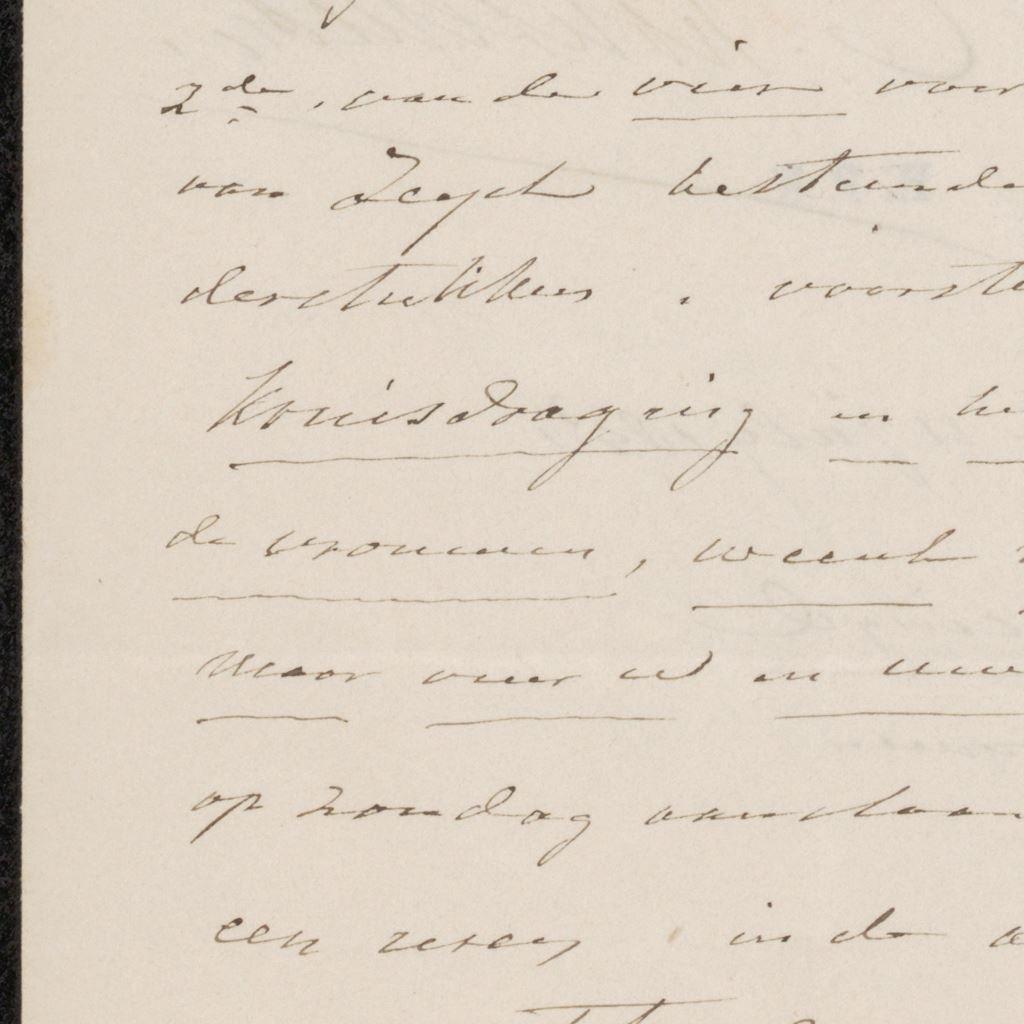 2de, van de vier voor
van Zegh bestemde
derstukken, voorste
Kruisdraging en he
de vrouwen, weent
maar over u en uw
op zondag aanstaan
een uren in de